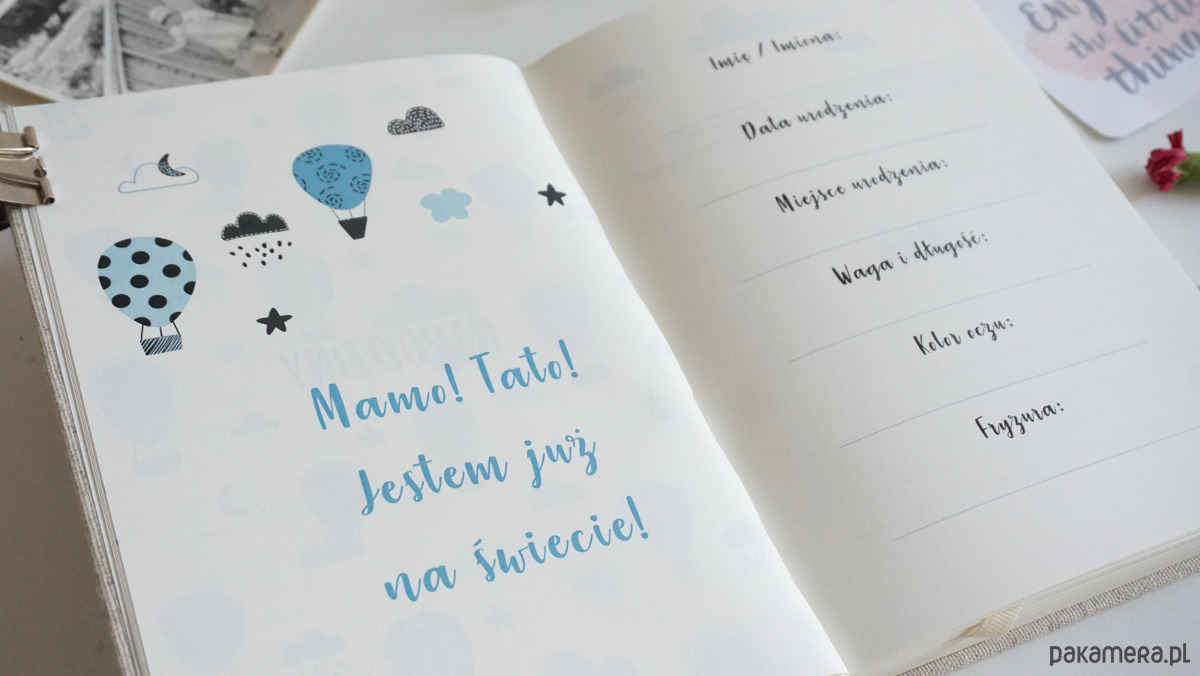 Mamo! Tato!
Jestem już
na świecie!
Imię / Imiona:
Data urodzenia:
Miejsce urodzenia:
Waga i długość:
Kolor oczu:
Fryzura:
the little
pakamera.pl